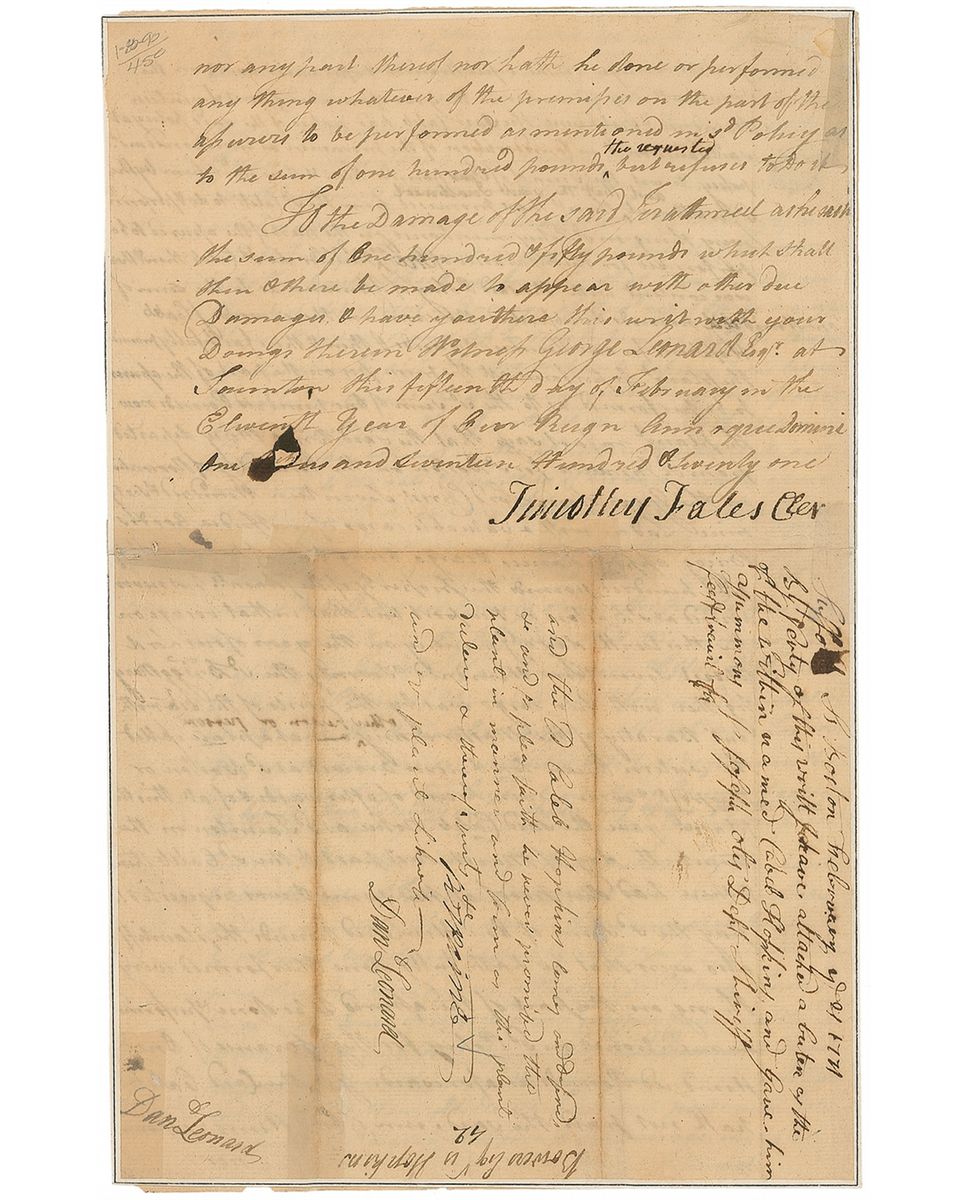 1-20-90
450
nor any part thereof nor hath he done or performed
any thing whatever of the premisses on the part of the
assurers to be performed as mentioned in sd Policy as
to the sum of one hundred pounds, tho requested but refuses to do it
To the Damage of the said as he saith
the sum of One hundred & fifty pounds which shall
then & there be made to appear with other due
Damages & have you there this writ with your
Doings therein Witness George Leonard Esqr. at
Taunton this fifteenth day of February in the
Eleventh Year of Our Reign Annoque Domini
One thousand seventeen Hundred & Seventy one
Timothy Fales Cler
Suffolk Ss Boston February ye 21 1771
By of this writt I have attached a buten of the
of the within named Caleb Hopkins and Gave him
a summons Joseph Otis Dept. Sheriff
fees
and the sd Caleb Hopkins comes and defends
&c and for plea saith he never promised the
plant in manner and form as the plant
declares & thereof puts &c
Dan Leonard
and ye plant likewise
R
Dan Leonard
Bowers Esqr v Hopkins